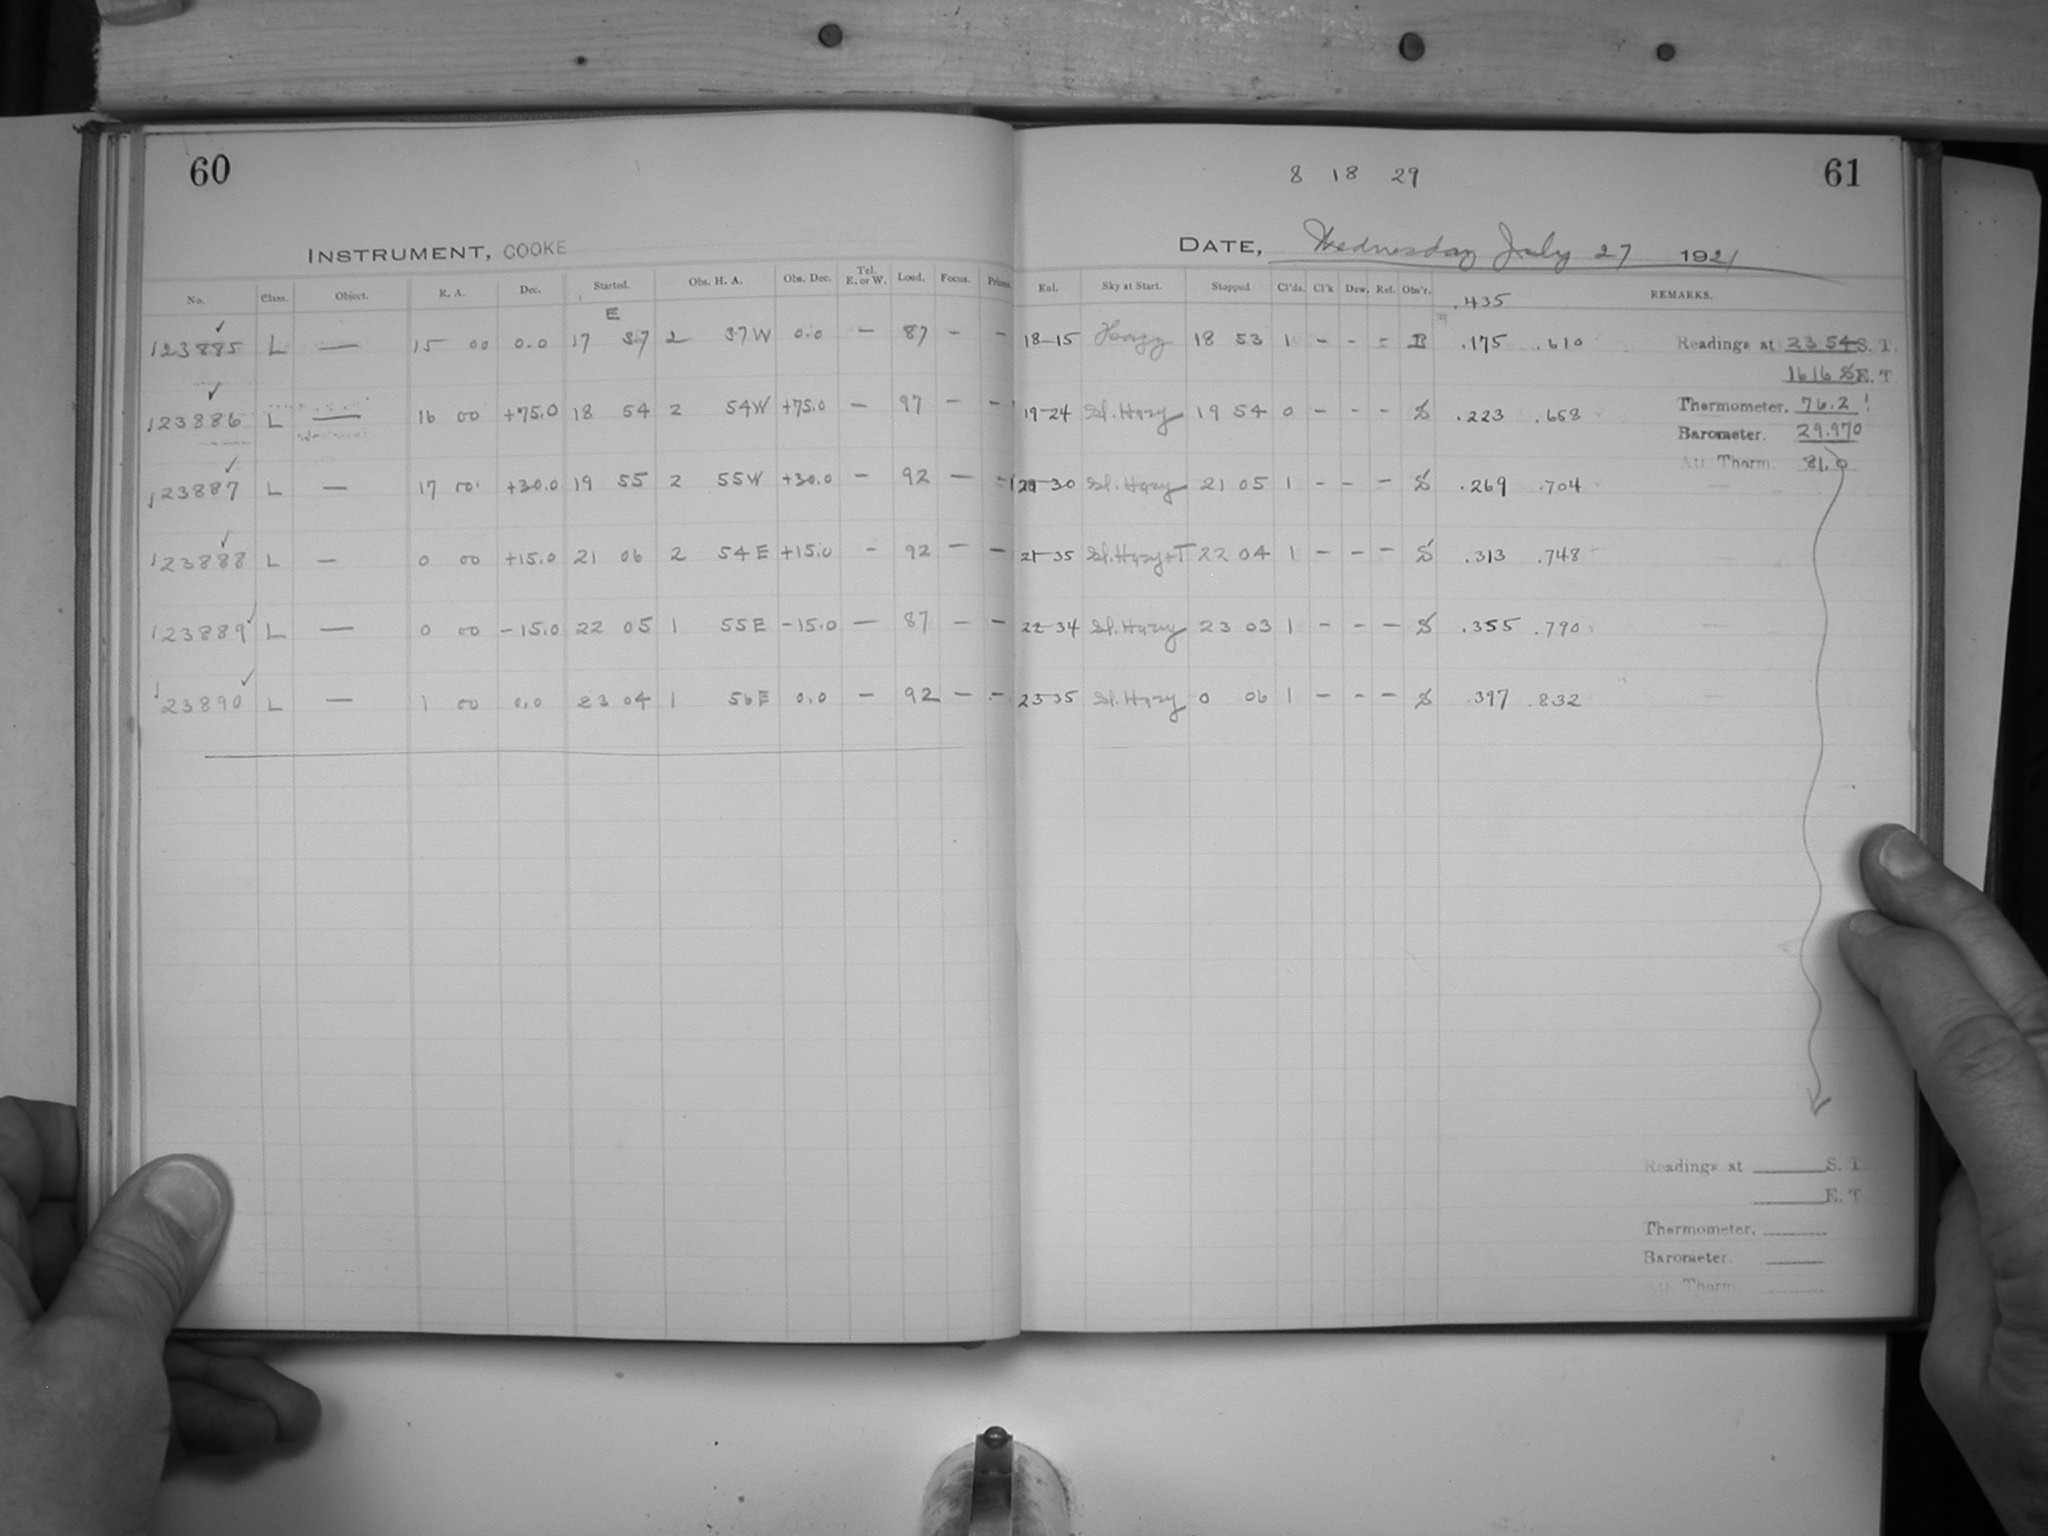 60
INSTRUMENT, COOKE
No. Class. Object. R. A. Dec. Started. Obs. H. A. Obs. Dec. Tel. E. or W. Load. Focus. Prisms.
E
123885 L — 15 00 0.0 17 37 2 37W 0.0 — 87 - -
123886 L — 16 00 +75.0 18 54 2 54W +75.0 — 97 - -
123887 L — 17 00 +30.0 19 55 2 55W +30.0 — 92 — -
123888 L — 0 00 +15.0 21 06 2 54E +15.0 - 92 — —
123889 L — 0 00 -15.0 22 05 1 55E -15.0 — 87 — —
123890 L — 1 00 0.0 23 04 1 56E 0.0 — 92 — -
61
8 18 29
DATE, Wednesday July 27 1921
Enl. Sky at Start. Stopped Cl'ds. Cl'k Dew. Ref. Obs'r. REMARKS.
.435
18-15 Hazy 18 53 1 - - - B .175 .610
19-24 Sl. Hazy 19 54 0 - - - S .223 .658
30 Sl. Hazy 21 05 1 - - - S .269 .704
21-35 Sl. Hazy+T 22 04 1 - - - S .313 .748
22-34 Sl. Hazy 23 03 1 - - - S .355 .790
23-35 Sl. Hazy 0 06 1 - - - S .397 .832
Readings at 23 54 S. T.
16 16 E. T
Thermometer. 76.2
Barometer. 29.970
Att. Therm. 81.0
Readings at S. T.
E. T
Thermometer.
Barometer.
Att. Therm.